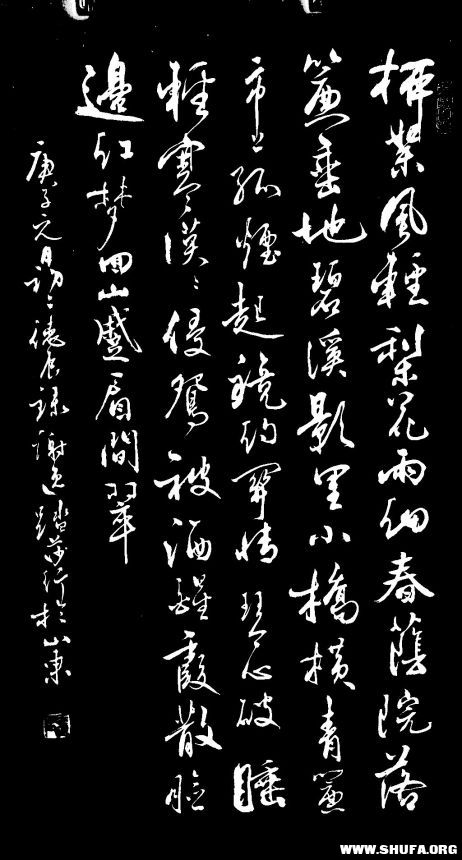 柳絮風輕梨花雨細春蔭院落
簾垂地碧溪影里小橋橫青簾
市上孤煙起鏡約關情琴心破睡
輕寒漠々侵鴛被酒醒霞散臉
邊紅梦回山蹙眉間翠
庚子元月 錄謝逸踏莎行於山東
WWW.SHUFA.ORG